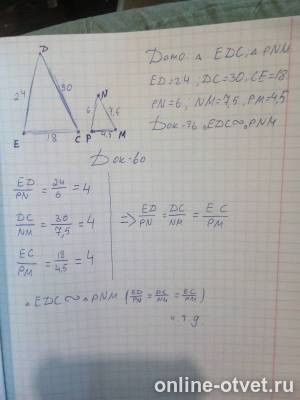 D
24
30
E
18
C
N
6
7,5
P
4,5
M
Дано: △ EDC; △ PNM
ED=24; DC=30; CE=18
PN=6, NM=7,5, PM=4,5
Док-ть △EDC∞△PNM
Док-во
ED/PN = 24/6 = 4
DC/NM = 30/7,5 = 4
EC/PM = 18/4,5 = 4
=> ED/PN = DC/NM = EC/PM
△EDC∞△PNM (ED/PN = DC/NM = EC/PM)
ч.т.д
online-otvet.ru